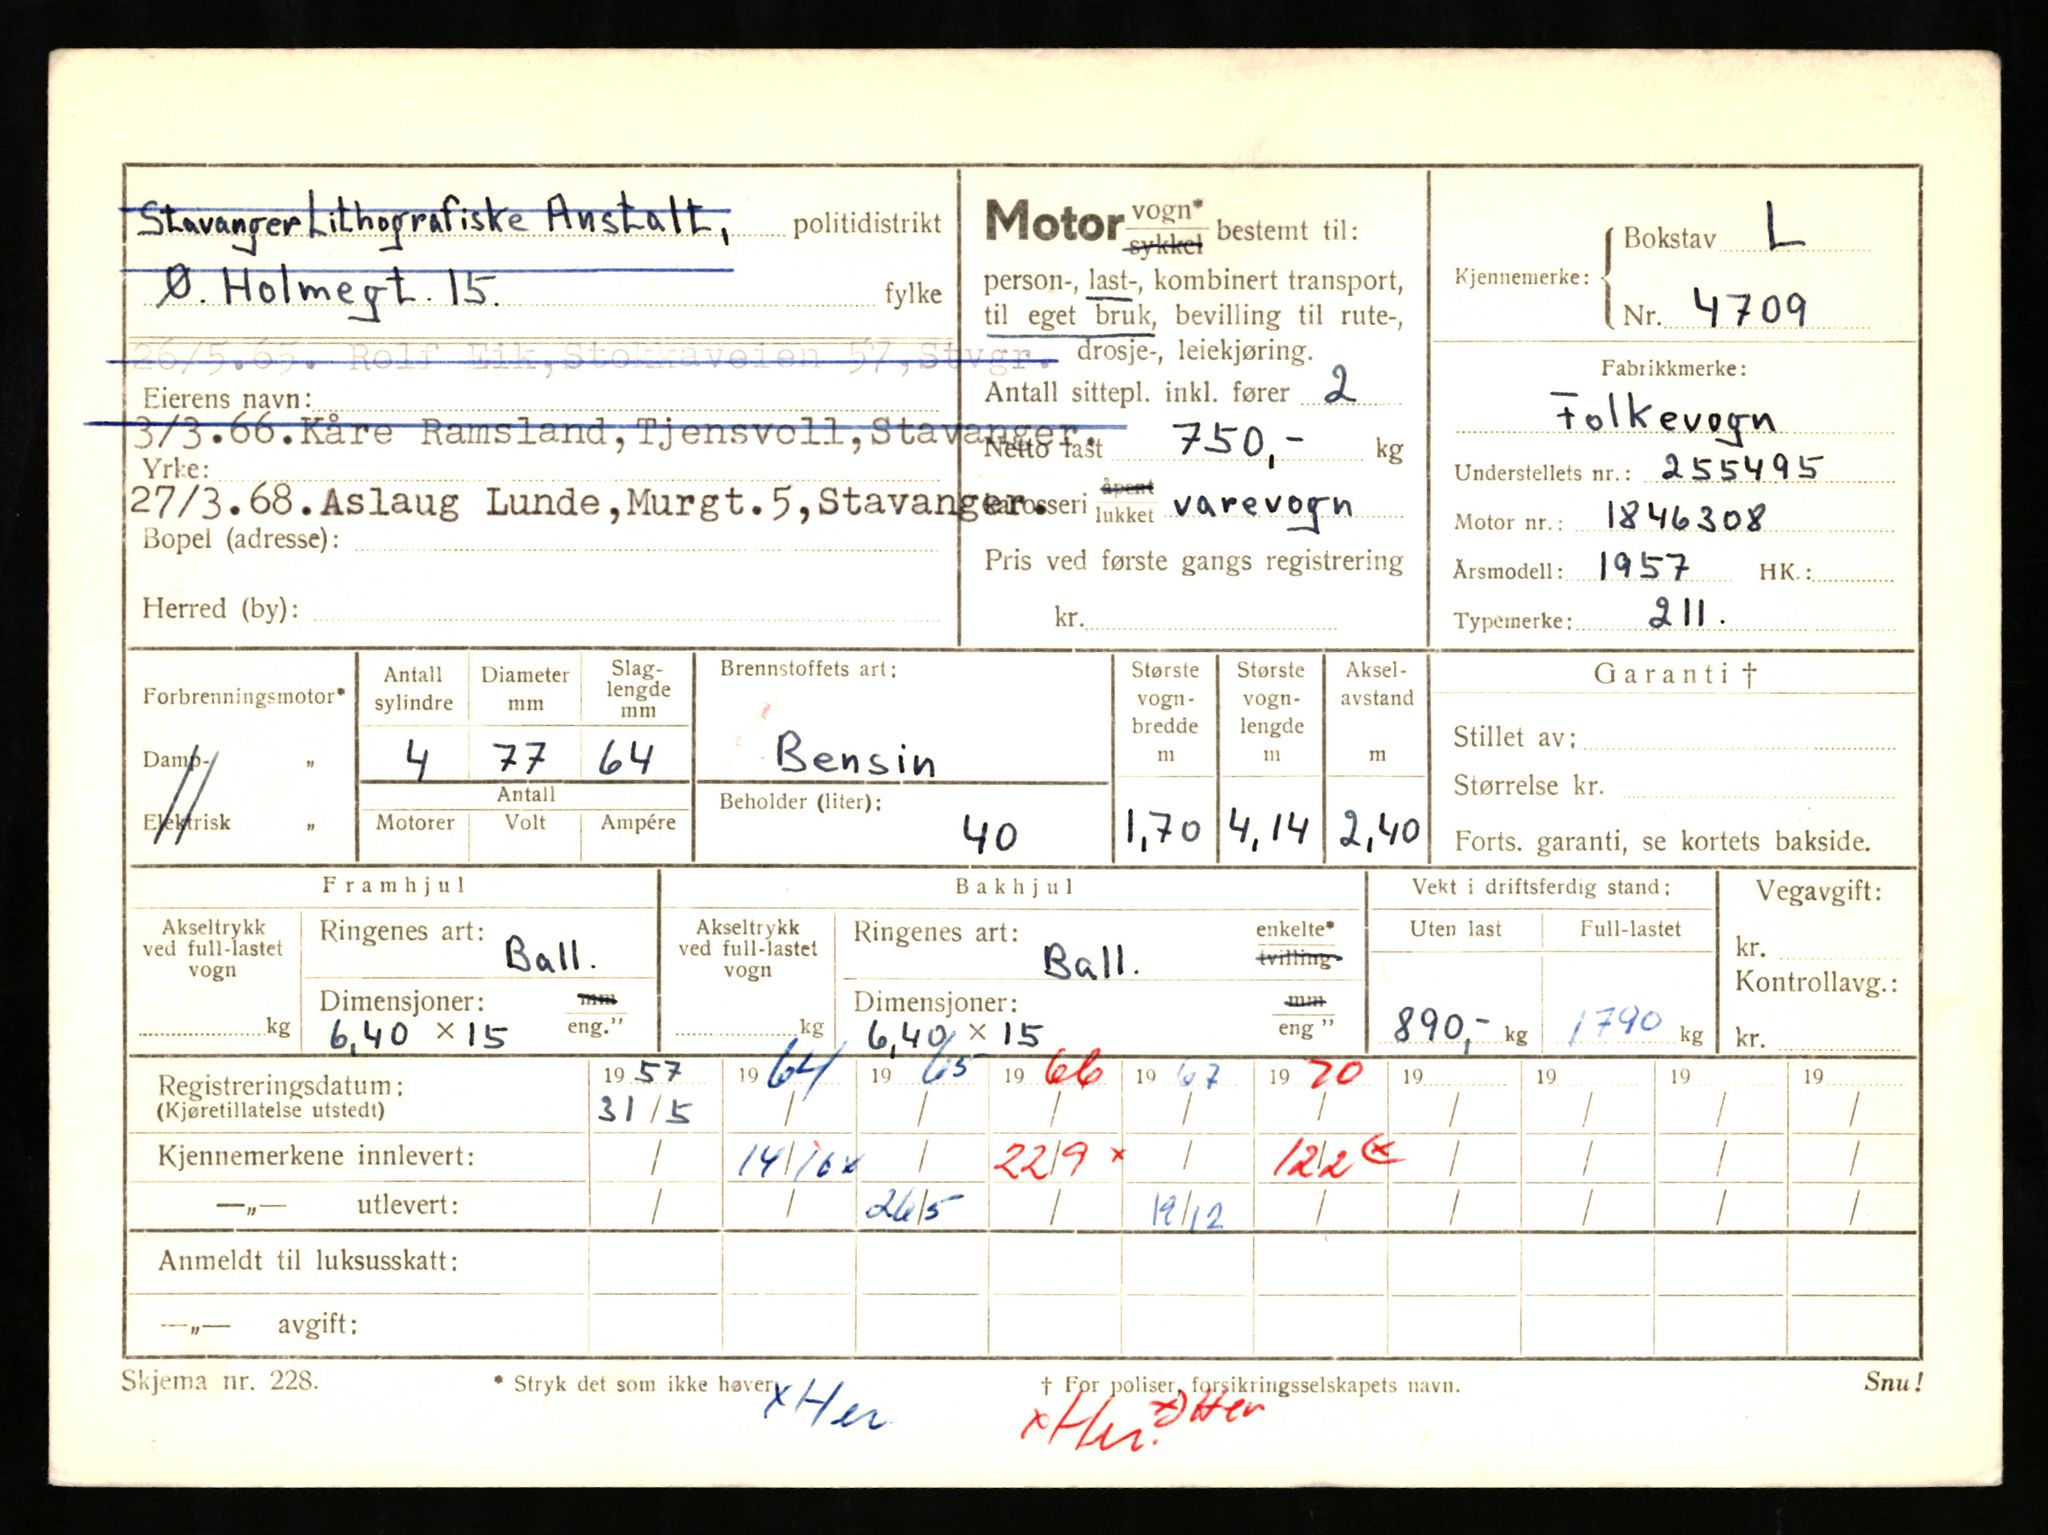 Stavanger Lithografiske Anstalt, politidistrikt
Ø. Holmegt. 15. fylke
26/5.65. Rolf Eik,Stokkaveien 57,Stvgr.
Eierens navn:
3/3.66.Kåre Ramsland,Tjensvoll,Stavanger.
Yrke:
27/3.68.Aslaug Lunde,Murgt.5,Stavanger.
Bopel (adresse):
Herred (by):
Motor vogn* sykkel bestemt til:
person-, last-, kombinert transport,
til eget bruk, bevilling til rute-,
drosje-, leiekjøring.
Antall sittepl. inkl. fører 2
Netto last 750,- kg
Karosseri åpent lukket varevogn
Pris ved første gangs registrering
kr.
Kjennemerke: Bokstav L
Nr. 4709
Fabrikkmerke:
Folkevogn
Understellets nr.: 255495
Motor nr.: 1846308
Årsmodell: 1957 HK.:
Typemerke: 211.
Forbrenningsmotor*
Damp- „
Elektrisk „
Antall sylindre Diameter mm Slag-lengde mm
4 77 64
Antall
Motorer Volt Ampére
Brennstoffets art:
Bensin
Beholder (liter):
40
Største vogn-bredde m
1,70
Største vogn-lengde m
4,14
Aksel-avstand m
2,40
Garanti †
Stillet av:
Størrelse kr.
Forts. garanti, se kortets bakside.
Framhjul
Akseltrykk ved full-lastet vogn
kg
Ringenes art: Ball.
Dimensjoner: mm eng.”
6,40 × 15
Bakhjul
Akseltrykk ved full-lastet vogn
kg
Ringenes art: Ball. enkelte* tvilling
Dimensjoner: mm eng ”
6,40 × 15
Vekt i driftsferdig stand:
Uten last Full-lastet
890,- kg 1790 kg
Vegavgift:
kr.
Kontrollavg.:
kr.
Registreringsdatum: 1957 1964 1965 1966 1967 1970 19 19 19 19
(Kjøretillatelse utstedt) 31/5 / / / / / / / / /
Kjennemerkene innlevert: / 14/10x / 22/9 x / 12/2 (x / / / /
—„— utlevert: / / 26/5 / 19/12 / / / / /
Anmeldt til luksusskatt:
—„— avgift:
Skjema nr. 228. * Stryk det som ikke høver. † For poliser, forsikringsselskapets navn. Snu!
x Her x Her. x) Her